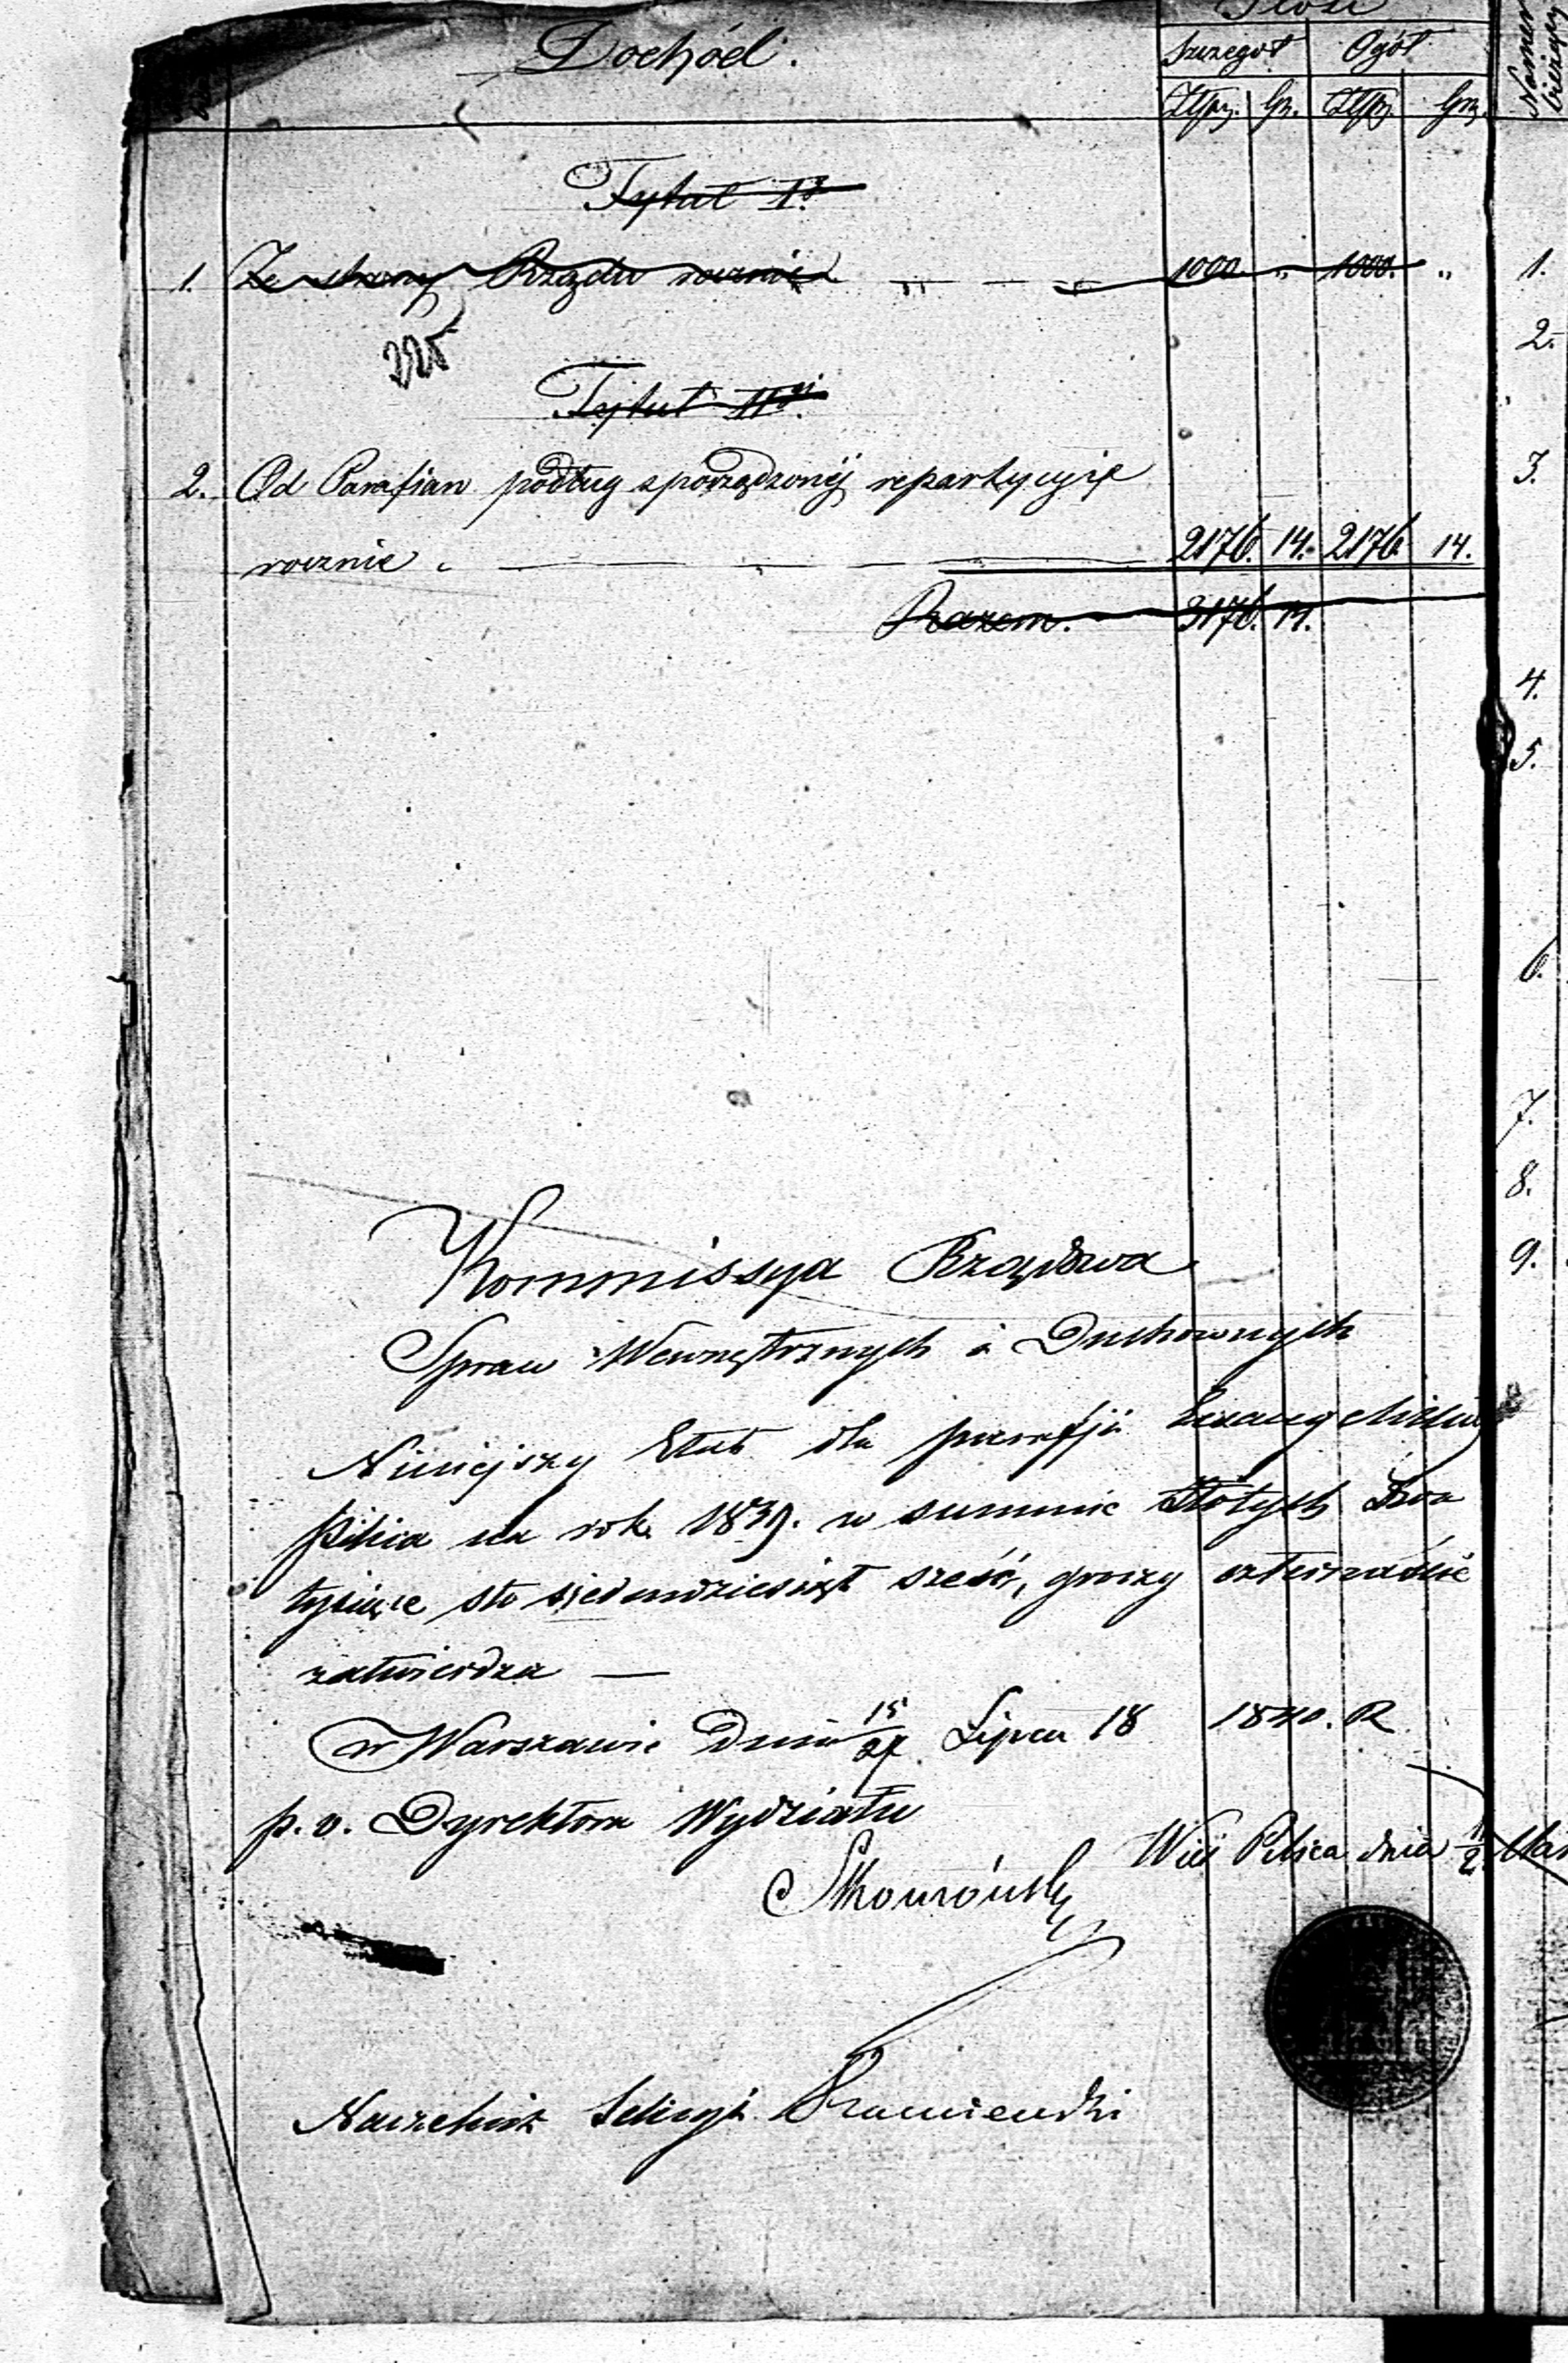 Dochód.
Szczegół Ogół
Złpa. Gr. Złp. Gr.
Numer bieżący
Tytuł I.
1. Ze strony Rządu rocznie „ — — 1000. „ 1000. „
225
Tytuł II.
2. Od Parafian podług sporządzonéj repartycyi
rocznie — — — 2176. 14. 2176. 14.
Razem. 3176. 14.
1.
2.
3.
4.
5.
6.
7.
8.
9.
Kommissya Rządowa
Spraw Wewnętrznych i Duchownych
Niniejszy Etat dla parafji
Pilica na rok 1839. w summie Złotych Dwa
tysiące sto siedmdziesiąt sześć, groszy czternaście
zatwierdza —
w Warszawie dnia 15/27 Lipca 18 1840. R
p. o. Dyrektora Wydziału
Wieś Pilica dnia
Naczelnik Sekcyi